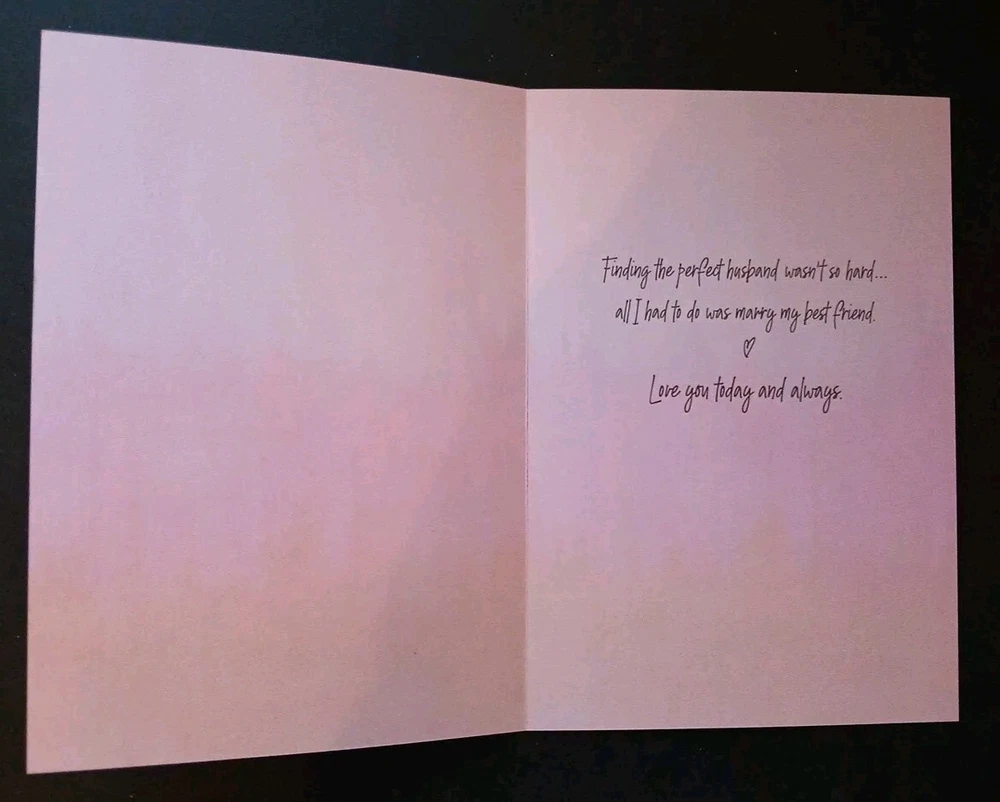 Finding the perfect husband wasn't so hard...
all I had to do was marry my best friend.
Love you today and always.